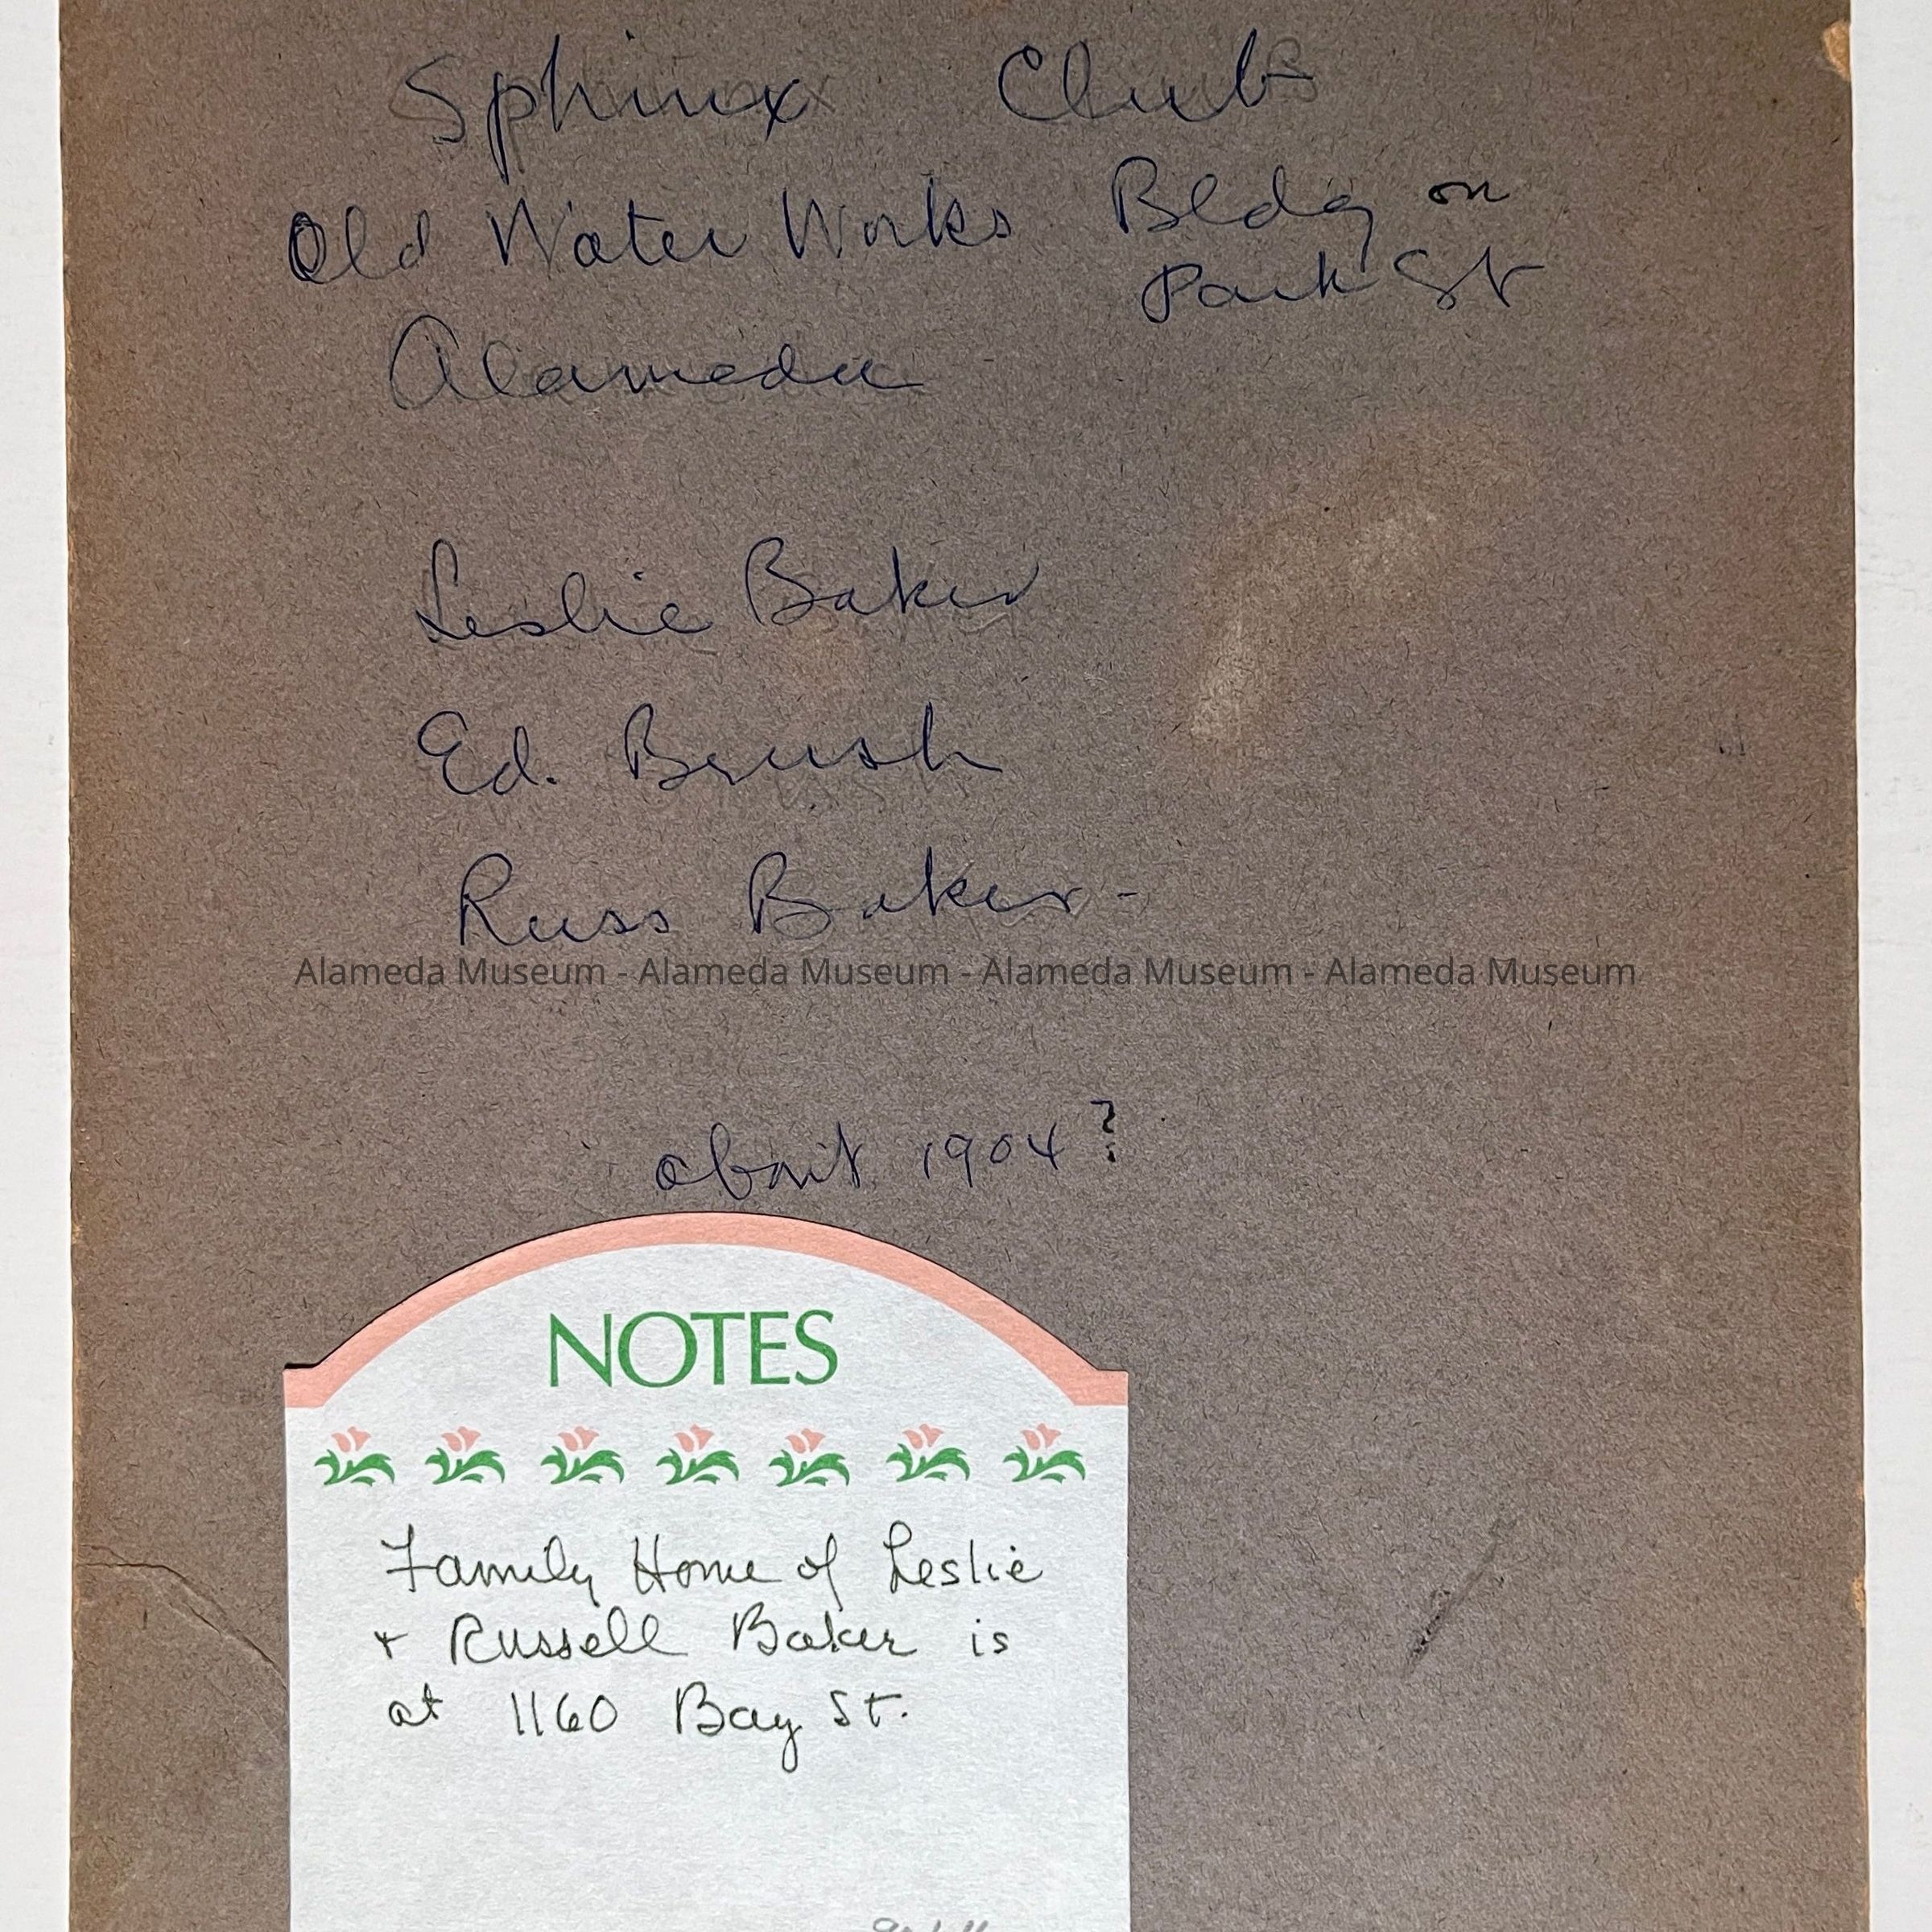 Sphinx Club
Old Water Works Bldg on
Park St
Alameda
Leslie Baker
Ed. Brush
Russ Baker -
Alameda Museum - Alameda Museum - Alameda Museum - Alameda Museum
about 1904?
NOTES
Family Home of Leslie
+ Russell Baker is
at 1160 Bay St.